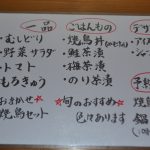 一品
・むしどり
・野菜サラダ
・トマト
・もろきゅう
おまかせ
焼鳥セット
ごはんもの
・焼鳥丼
・鮭茶漬
・梅茶漬
・のり茶漬
☆旬のおすすめ☆
色々あります
デザ
・アイス